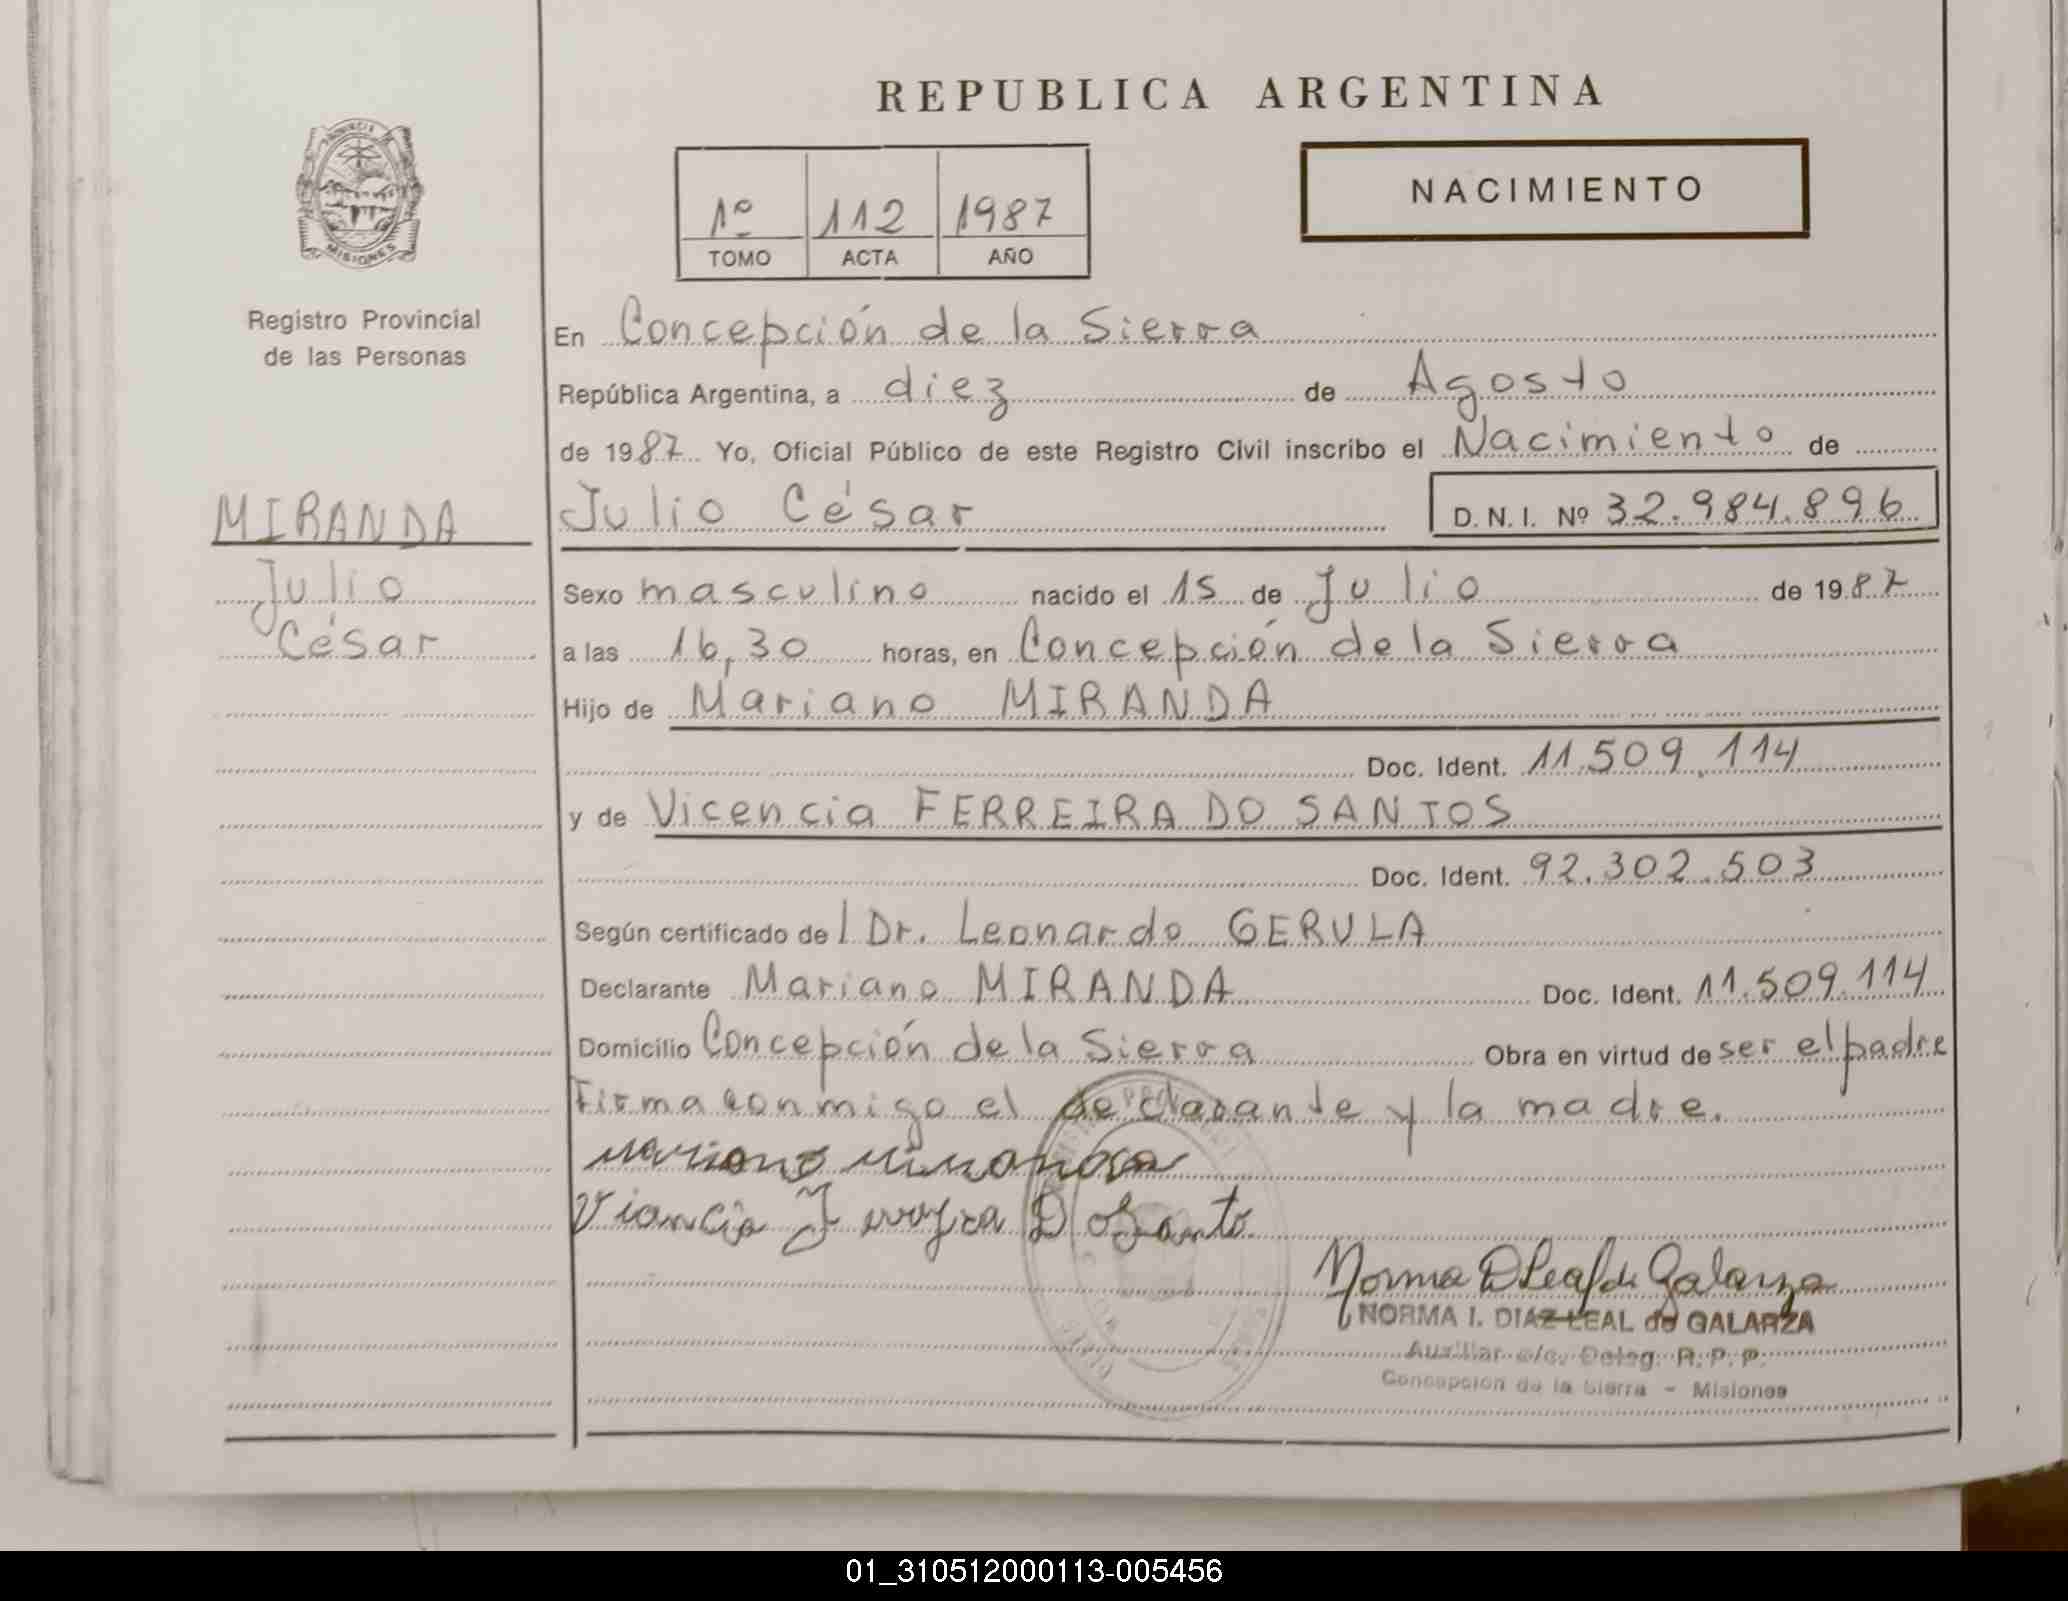 REPUBLICA ARGENTINA
PROVINCIA
MISIONES
Registro Provincial
de las Personas
1º 112 1987
TOMO ACTA AÑO
NACIMIENTO
En Concepción de la Sierra
República Argentina, a diez de Agosto
de 1987 Yo, Oficial Público de este Registro Civil inscribo el Nacimiento de
MIRANDA
Julio
César
Julio César D.N.I. Nº 32.984.896
Sexo masculino nacido el 15 de Julio de 1987
a las 16,30 horas, en Concepción de la Sierra
Hijo de Mariano MIRANDA
Doc. Ident. 11.509.114
y de Vicencia FERREIRA DO SANTOS
Doc. Ident. 92.302.503
Según certificado del Dr. Leonardo GERULA
Declarante Mariano MIRANDA Doc. Ident. 11.509.114
Domicilio Concepción de la Sierra Obra en virtud de ser el padre
Firma conmigo el declarante y la madre.
mariano miranda
Norma D Leal de Galarza
NORMA I. DIAZ LEAL de GALARZA
Auxiliar a/c. Deleg. R. P. P.
Concepcion de la Sierra - Misiones
01_310512000113-005456